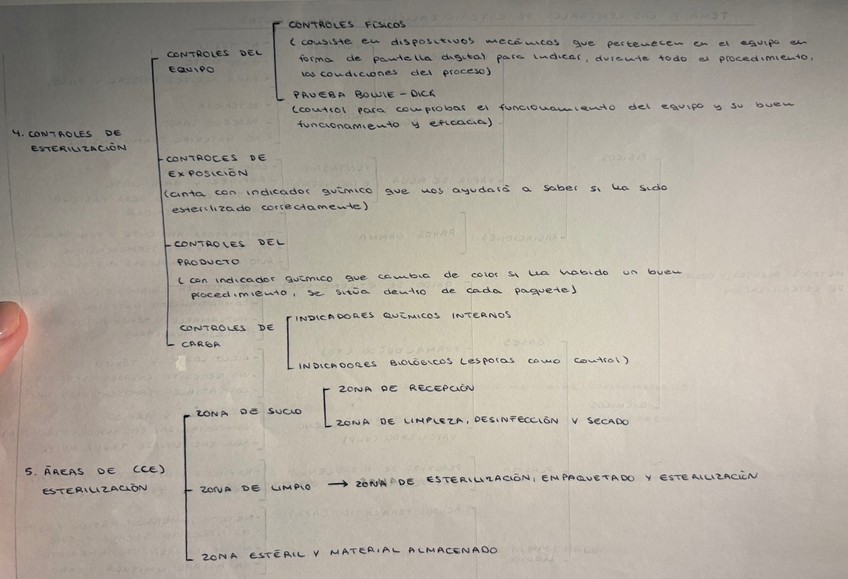 CONTROLES FÍSICOS
(consiste en dispositivos mecánicos que pertenecen en el equipo en
forma de pantalla digital para indicar, durante todo el procedimiento,
las condiciones del proceso)
CONTROLES DEL
EQUIPO
PRUEBA BOWIE-DICK
(control para comprobar el funcionamiento del equipo y su buen
funcionamiento y eficacia)
4. CONTROLES DE
ESTERILIZACIÓN
CONTROLES DE
EXPOSICIÓN
(cinta con indicador químico que nos ayudará a saber si ha sido
esterilizado correctamente)
CONTROLES DEL
PRODUCTO
(con indicador químico que cambia de color si ha habido un buen
procedimiento, se sitúa dentro de cada paquete)
CONTROLES DE
CARGA
INDICADORES QUÍMICOS INTERNOS
INDICADORES BIOLÓGICOS (esporas como control)
5. ÁREAS DE (CE)
ESTERILIZACIÓN
ZONA DE SUCIO
ZONA DE RECEPCIÓN
ZONA DE LIMPIEZA, DESINFECCIÓN Y SECADO
ZONA DE LIMPIO → ZONA DE ESTERILIZACIÓN, EMPAQUETADO Y ESTERILIZACIÓN
ZONA ESTÉRIL Y MATERIAL ALMACENADO